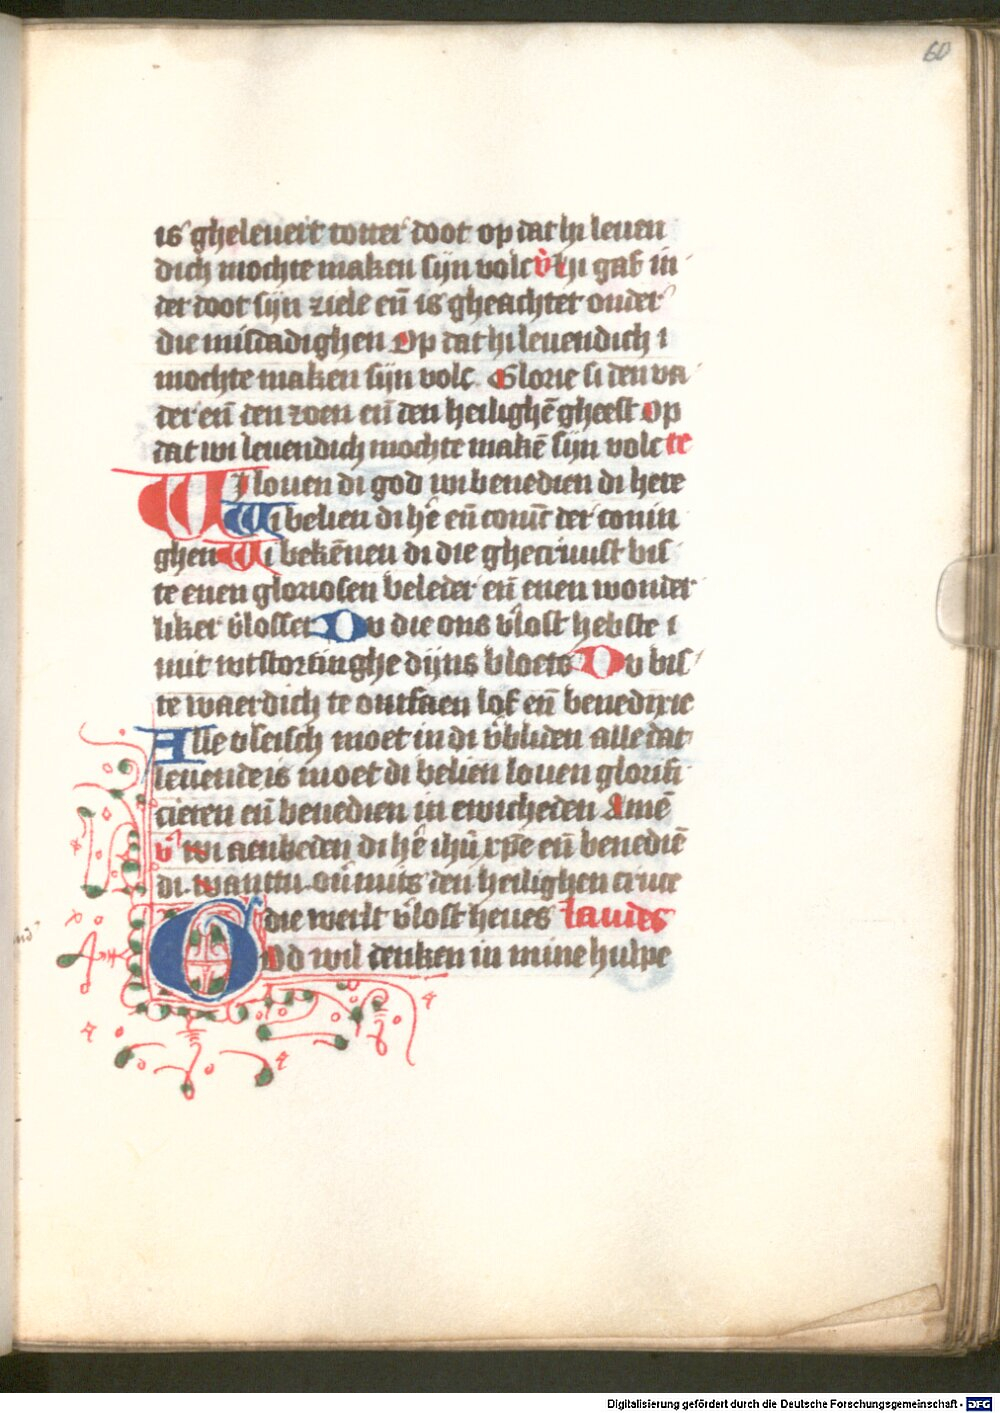 60
is gheleuert totter doot op dat hi leuen
dich mochte maken sijn volc v̄ hi gaf in
der doot sijn ziele en̄ is gheachtet onder
die misdadighen Op dat hi leuendich
mochte maken sijn volc Glorie si den va
der en̄ den zoen en̄ den heilighē gheest Op
dat wi leuendich mochte makē sijn volc te
Wi louen di god wi benedien di here
Wi belien di hē en̄ coninc der conin
ghen Wi bekēnen di die ghecruust bis
te enen gloriosen beleder en̄ enen wonder
liker v̄losser Du die ons v̄lost hebste i
mit wtstortinghe dijns bloets Du bis
te waerdich te ontfaen lof en̄ benedixie
Alle vleisch moet in di v̄bliden alle dat
leuende is moet di belien louen glorifi
cieren en̄ benedien in ewicheden Amē
v̄ wi aenbeden di hē ihū xpē en̄ benediē
di want tu ou̅mits den heilighen cruce
die werlt v̄lost heues laudes
God wil denken in mine hulpe
Digitalisierung gefördert durch die Deutsche Forschungsgemeinschaft - DFG